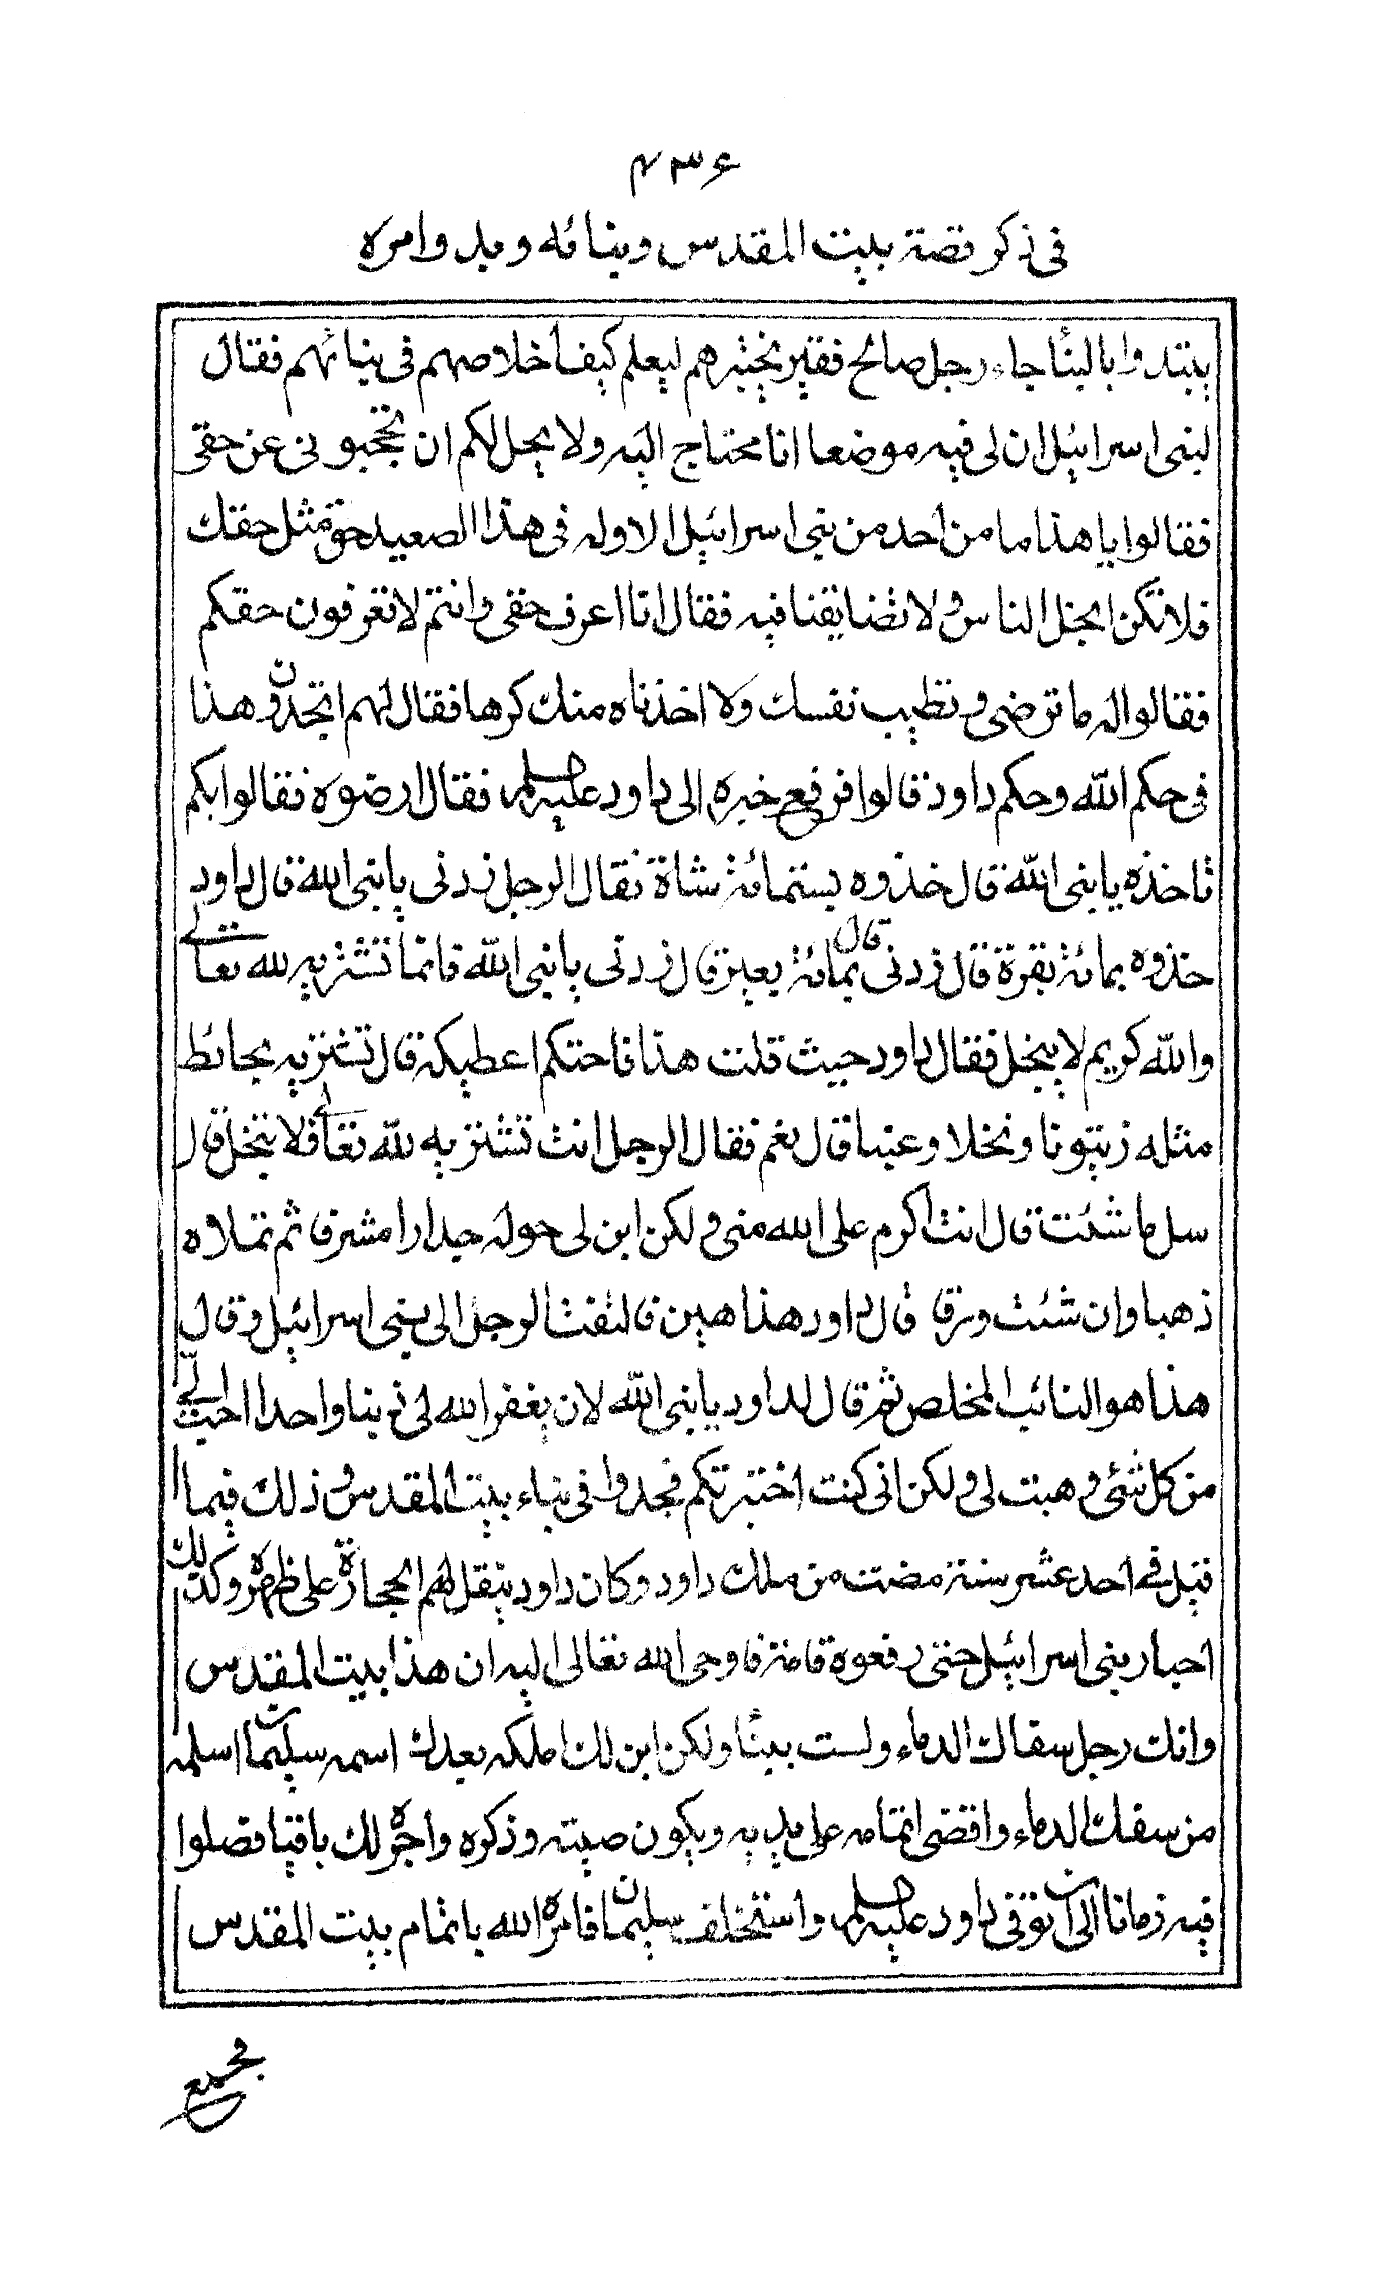 ۴۳۶
فى ذكر قصة بيت المقدس وبنائه وبدوامره
يبتدوا بالبنأجاء رجل صالح فقير يختبرهم ليعلم كيف اخلاصهم فى بنائهم فقال
لبنى اسرائيل ان لى فيه موضعا انا محتاج اليه ولا يحل لكم ان تحجبونى عن حقى
فقالوا يا هذا ما من احد من بنى اسرائيل الا وله فى هذا الصعيد حق مثل حقك
فلا تكن ابخل الناس ولا تضايقنا فيه فقال انا اعرف حقى وانتم لا تعرفون حقكم
فقالوا له ما ترضى وتطيب نفسك ولا اخذناه منك كرها فقال لهم اتجدون هذا
فى حكم الله وحكم داود قالوا فرفع خبره الى داود عليه السلم فقال ارضوه فقالوا بكم
ناخذه يا نبى الله قال خذوه بستمائة شاة فقال الرجل زدنى يا نبى الله قال داود
خذوه بمائة بقرة قال زدنى قال بمائة بعير قال زدنى يا نبى الله فانما تشتريه لله تعالى
والله كريم لا يبخل فقال داود حيث قلت هذا فاحتكم اعطيكه قال تشتريه بحائط
مثله زيتونا ونخلا وعنبا قال نعم فقال الرجل انت تشتريه لله تعالى فلا تبخل قال
سل ما شئت قال انت اكرم على الله منى ولكن ابن لى حوله جدارا مشرفا ثم تملاه
ذهبا وان شئت ورقا قال داود هذا هين فالتفت الرجل الى بنى اسرائيل وقال
هذا هو التائب المخلص ثم قال لداود يا نبى الله لان يغفر الله لى ذنبا واحدا احب الى
من كل شئى وهبت لى ولكن انى كنت اختبرتكم فجدوا فى بناء بيت المقدس وذلك فيما
قيل فى احد عشر سنة مضت من ملك داود وكان داود ينقل لهم الحجارة على ظهره وكذلك
احبار بنى اسرائيل حتى رفعوه قامة فاوحى الله تعالى اليه ان هذا بيت المقدس
وانك رجل سفاك الدماء ولست ببنأ ولكن ابن لك املكه بعدك اسمه سليمان اسلمه
من سفك الدماء واقضى اتمامه على يديه ويكون صيته وذكره واجره لك باقيا فصلوا
فيه زمانا الى ان توفى داود عليه السلم واستخلف سليمان فامره الله باتمام بيت المقدس
فجميع